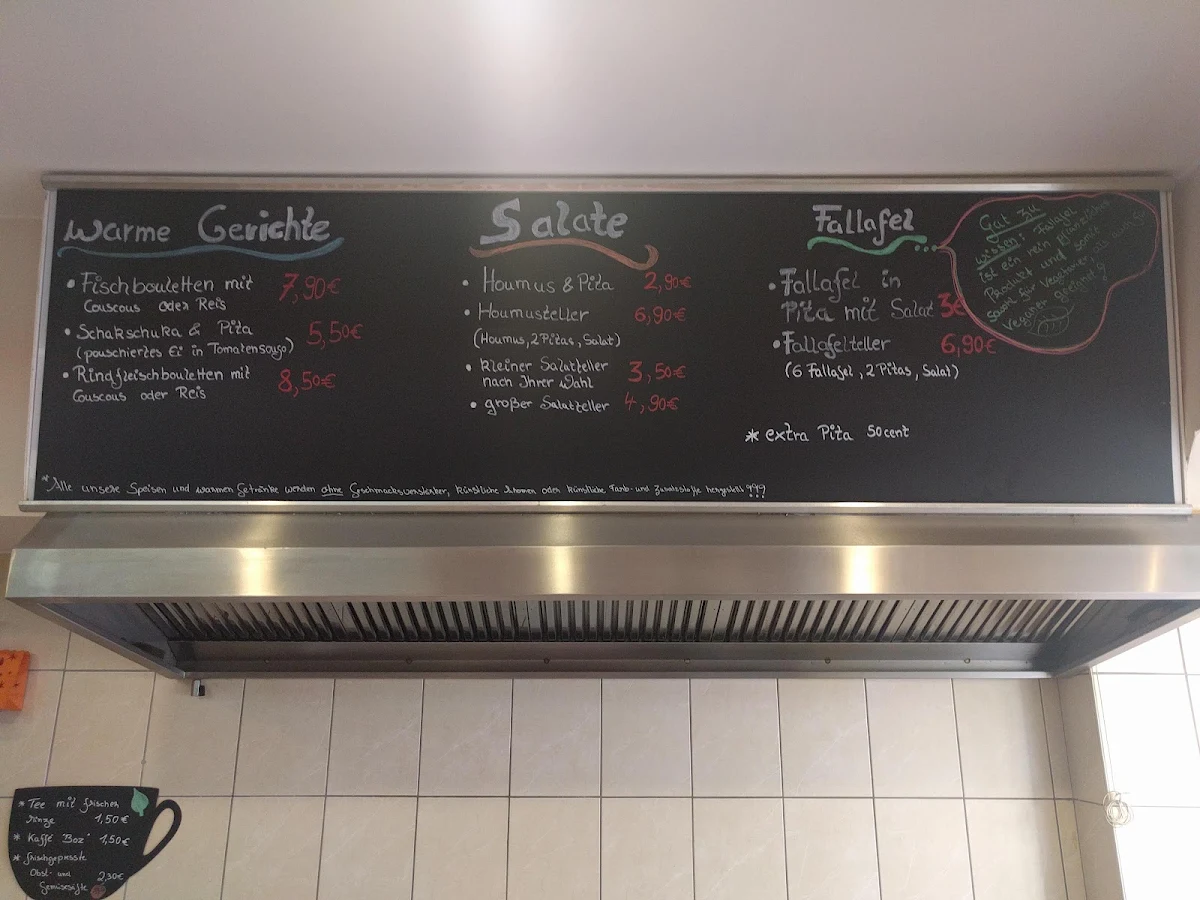 Warme Gerichte
• Fischbouletten mit 7,90€
Couscous oder Reis
• Schakschuka & Pita 5,50€
(pouschiertes Ei in Tomatensoße)
• Rindfleischbouletten mit 8,50€
Couscous oder Reis
Salate
• Houmus & Pita 2,90€
• Houmusteller 6,90€
(Houmus, 2 Pitas, Salat)
• kleiner Salatteller 3,50€
nach Ihrer Wahl
• großer Salatteller 4,90€
Fallafel
• Fallafel in
Pita mit Salat 3€
• Fallafelteller 6,90€
(6 Fallafel, 2 Pitas, Salat)
* extra Pita 50 cent
Gut zu
wissen: Fallafal
ist ein rein pflanzliches
Produkt und somit
sowol für Vegetarier, als auch für
Veganer geeignet
*Alle unsere Speisen und warmen Getränke werden ohne Geschmacksverstärker, künstliche Aromen oder künstliche Farb- und Zusatzstoffe hergestellt !!!
* Tee mit frischer
Minze 1,50€
* Kaffé "Boz" 1,50€
* frischgepresste
Obst- und 2,30€
Gemüsesäfte